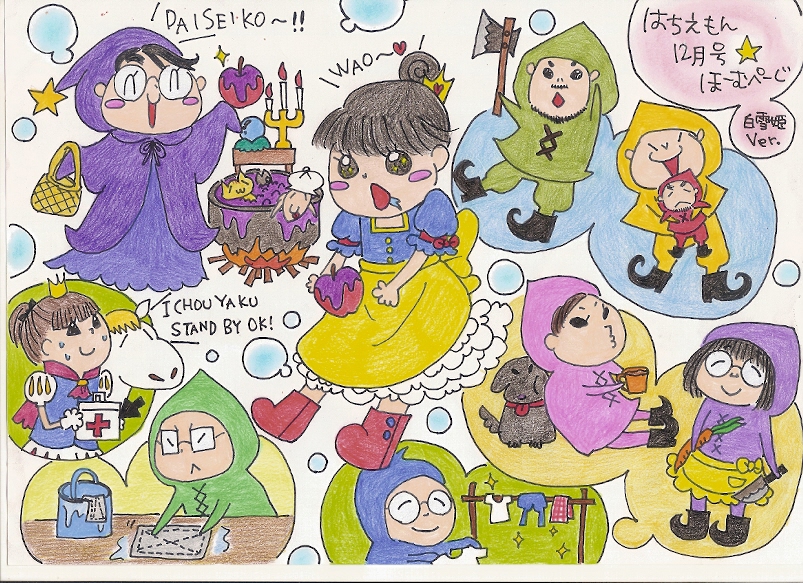 DAISEIKO〜!!
WAO〜♥
はちえもん
12月号★
ほーむぺーじ
白雪姫
Ver.
ICHOUYAKU
STAND BY OK!